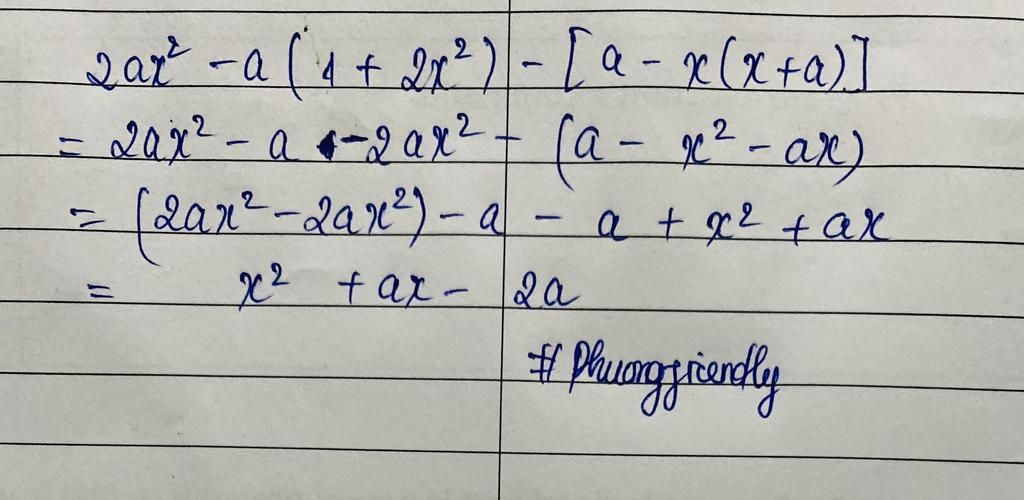 2ax² - a (1 + 2x²) - [a - x(x+a)]
= 2ax² - a - 2ax² - (a - x² - ax)
= (2ax² - 2ax²) - a - a + x² + ax
= x² + ax - 2a
# Phuongfriendly